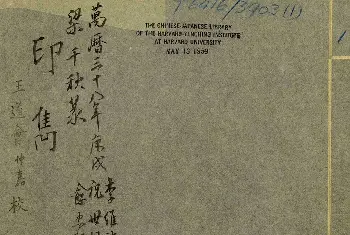 THE CHINESE-JAPANESE LIBRARY
OF THE HARVARD-YENCHING INSTITUTE
AT HARVARD UNIVERSITY
MAY 13 1959
萬曆三十八年庚戌
李維
祝世
俞
梁千秋篆
印雋
王道會仲嘉校